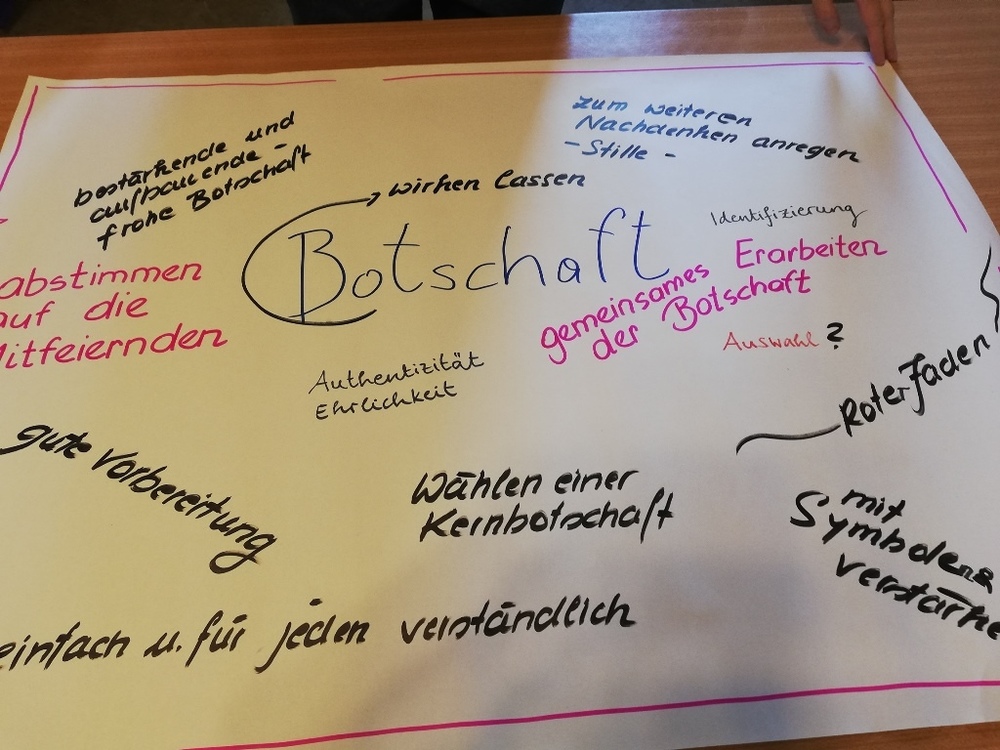 bestärkende und
aufbauende -
frohe Botschaft
zum weiteren
Nachdenken anregen
- Stille -
wirken lassen
Botschaft
Identifizierung
gemeinsames Erarbeiten
der Botschaft
Auswahl ?
abstimmen
auf die
Mitfeiernden
Authentizität
Ehrlichkeit
Roter Faden
gute Vorbereitung
Wählen einer
Kernbotschaft
mit
Symbolen
verstärke
einfach u. für jeden verständlich